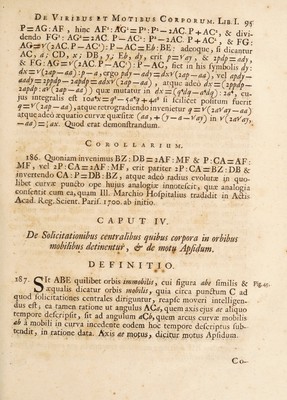 DE VIRIBUS ET MOTIBUS CORPORUM. LIB. I. 95
P=AG:AF, hinc AF²:AG²=P²: P²−2AC.P+AC², & divi-
dendo FG²:
AG=√(2AC.P−AC²): P−AC=Eb:BE: adeoque, si dicantur
AC, a; CD, x; DB, y; Eb, dy, erit p=√ay, & 2pdp=ady,
& FG:AG=√(2AC.P−AC²): P−AC, fiet in his symbolis dy:
dx=√(2ap−aa): p−a, ergo pdy−ady=dx√(2ap−aa), vel
jus integralis est
q=√(2ap−aa), atque retrogradiendo invenietur q=√(2a√ay−aa)
atque adeo æquatio curvæ quæsitæ
−aa)=
COROLLARIUM.
186. Quoniam invenimus BZ:DB=2AF:MF & P:CA=AF:
MF, vel 2P:CA=2AF:MF, erit pariter 2P:CA=BZ:DB &
invertendo CA:P=DB:BZ, atque adeo radius evolutæ in quo-
libet curvæ puncto ope hujus analogiæ innotescit, quæ analogia
consentit cum ea, quam Ill. Marchio Hospitalius tradidit in Actis
Acad. Reg. Scient. Paris. 1700. ab initio.
CAPUT IV.
De Solicitationibus centralibus quibus corpora in orbibus
mobilibus detinentur, & de motu Apsidum.
DEFINITIO.
187. Sit ABE quilibet orbis immobilis, cui figura abe similis &
Fig. 45.
æqualis dicatur orbis mobilis, quia circa punctum C ad
quod solicitationes centrales diriguntur, reapse moveri intelligen-
dus est, ea tamen ratione ut angulus ACa, quem axis ejus ae aliquo
tempore descripsit, sit ad angulum aCb, quem arcus curvæ mobilis
ab a mobili in curva incedente eodem hoc tempore descriptus sub-
tendit, in ratione data. Axis ae motus, dicitur motus Apsidum.
Co-